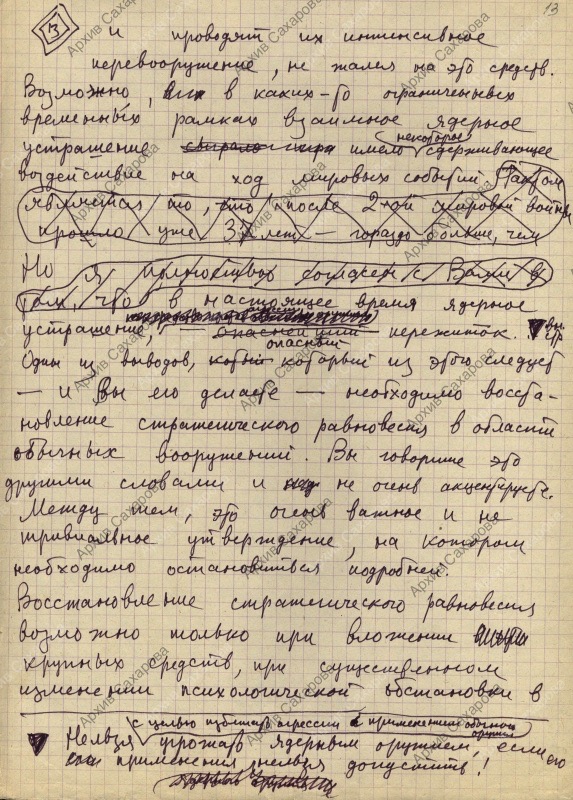 3
13
и проводят их интенсивное
перевооружение, не жалея на это средств.
Возможно, в каких-то ограниченных
временных рамках взаимное ядерное
устрашение имело некоторое сдерживающее
воздействие на ход мировых событий. Таким
является то, что после 2-ой мировой войны
прошло уже 37 лет — гораздо больше, чем
Но я полностью согласен с Вами в
том, что в настоящее время ядерное
устрашение, — опаснейший
опасный пережиток.
Один из выводов, который из этого следует
— и Вы его делаете — необходимо восста-
новление стратегического равновесия в области
обычных вооружений. Вы говорите это
другими словами и не очень акцентируете.
Между тем, это очень важное и не
тривиальное утверждение, на котором
необходимо остановиться подробней.
Восстановление стратегического равновесия
возможно только при вложении
крупных средств, при существенном
изменении психологической обстановки в
с целью избежать агрессии с применением обычного оружия
Нельзя угрожать ядерным оружием, если его
применения нельзя допустить!
Архив Сахарова